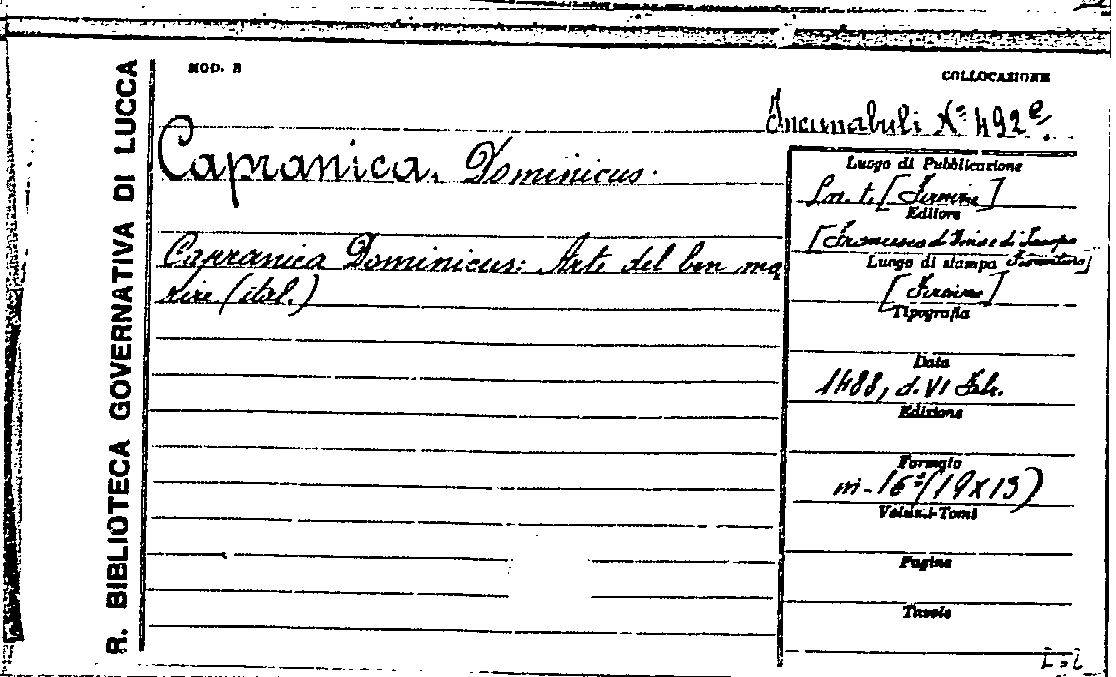 MOD. B
COLLOCAZIONE
Incunabuli N.º 492 e.
R. BIBLIOTECA GOVERNATIVA DI LUCCA
Capranica. Dominicus.
Capranica Dominicus: Arte del ben mo
rire (ital.)
Luogo di Pubblicazione
[Firenze]
Editore
[Francesco di
Luogo di stampa
[Firenze]
Tipografia
Data
1488, d. VI Febr.
Edizione
Formato
in-16º (19 x 13)
Volumi-Tomi
Pagine
Tavole